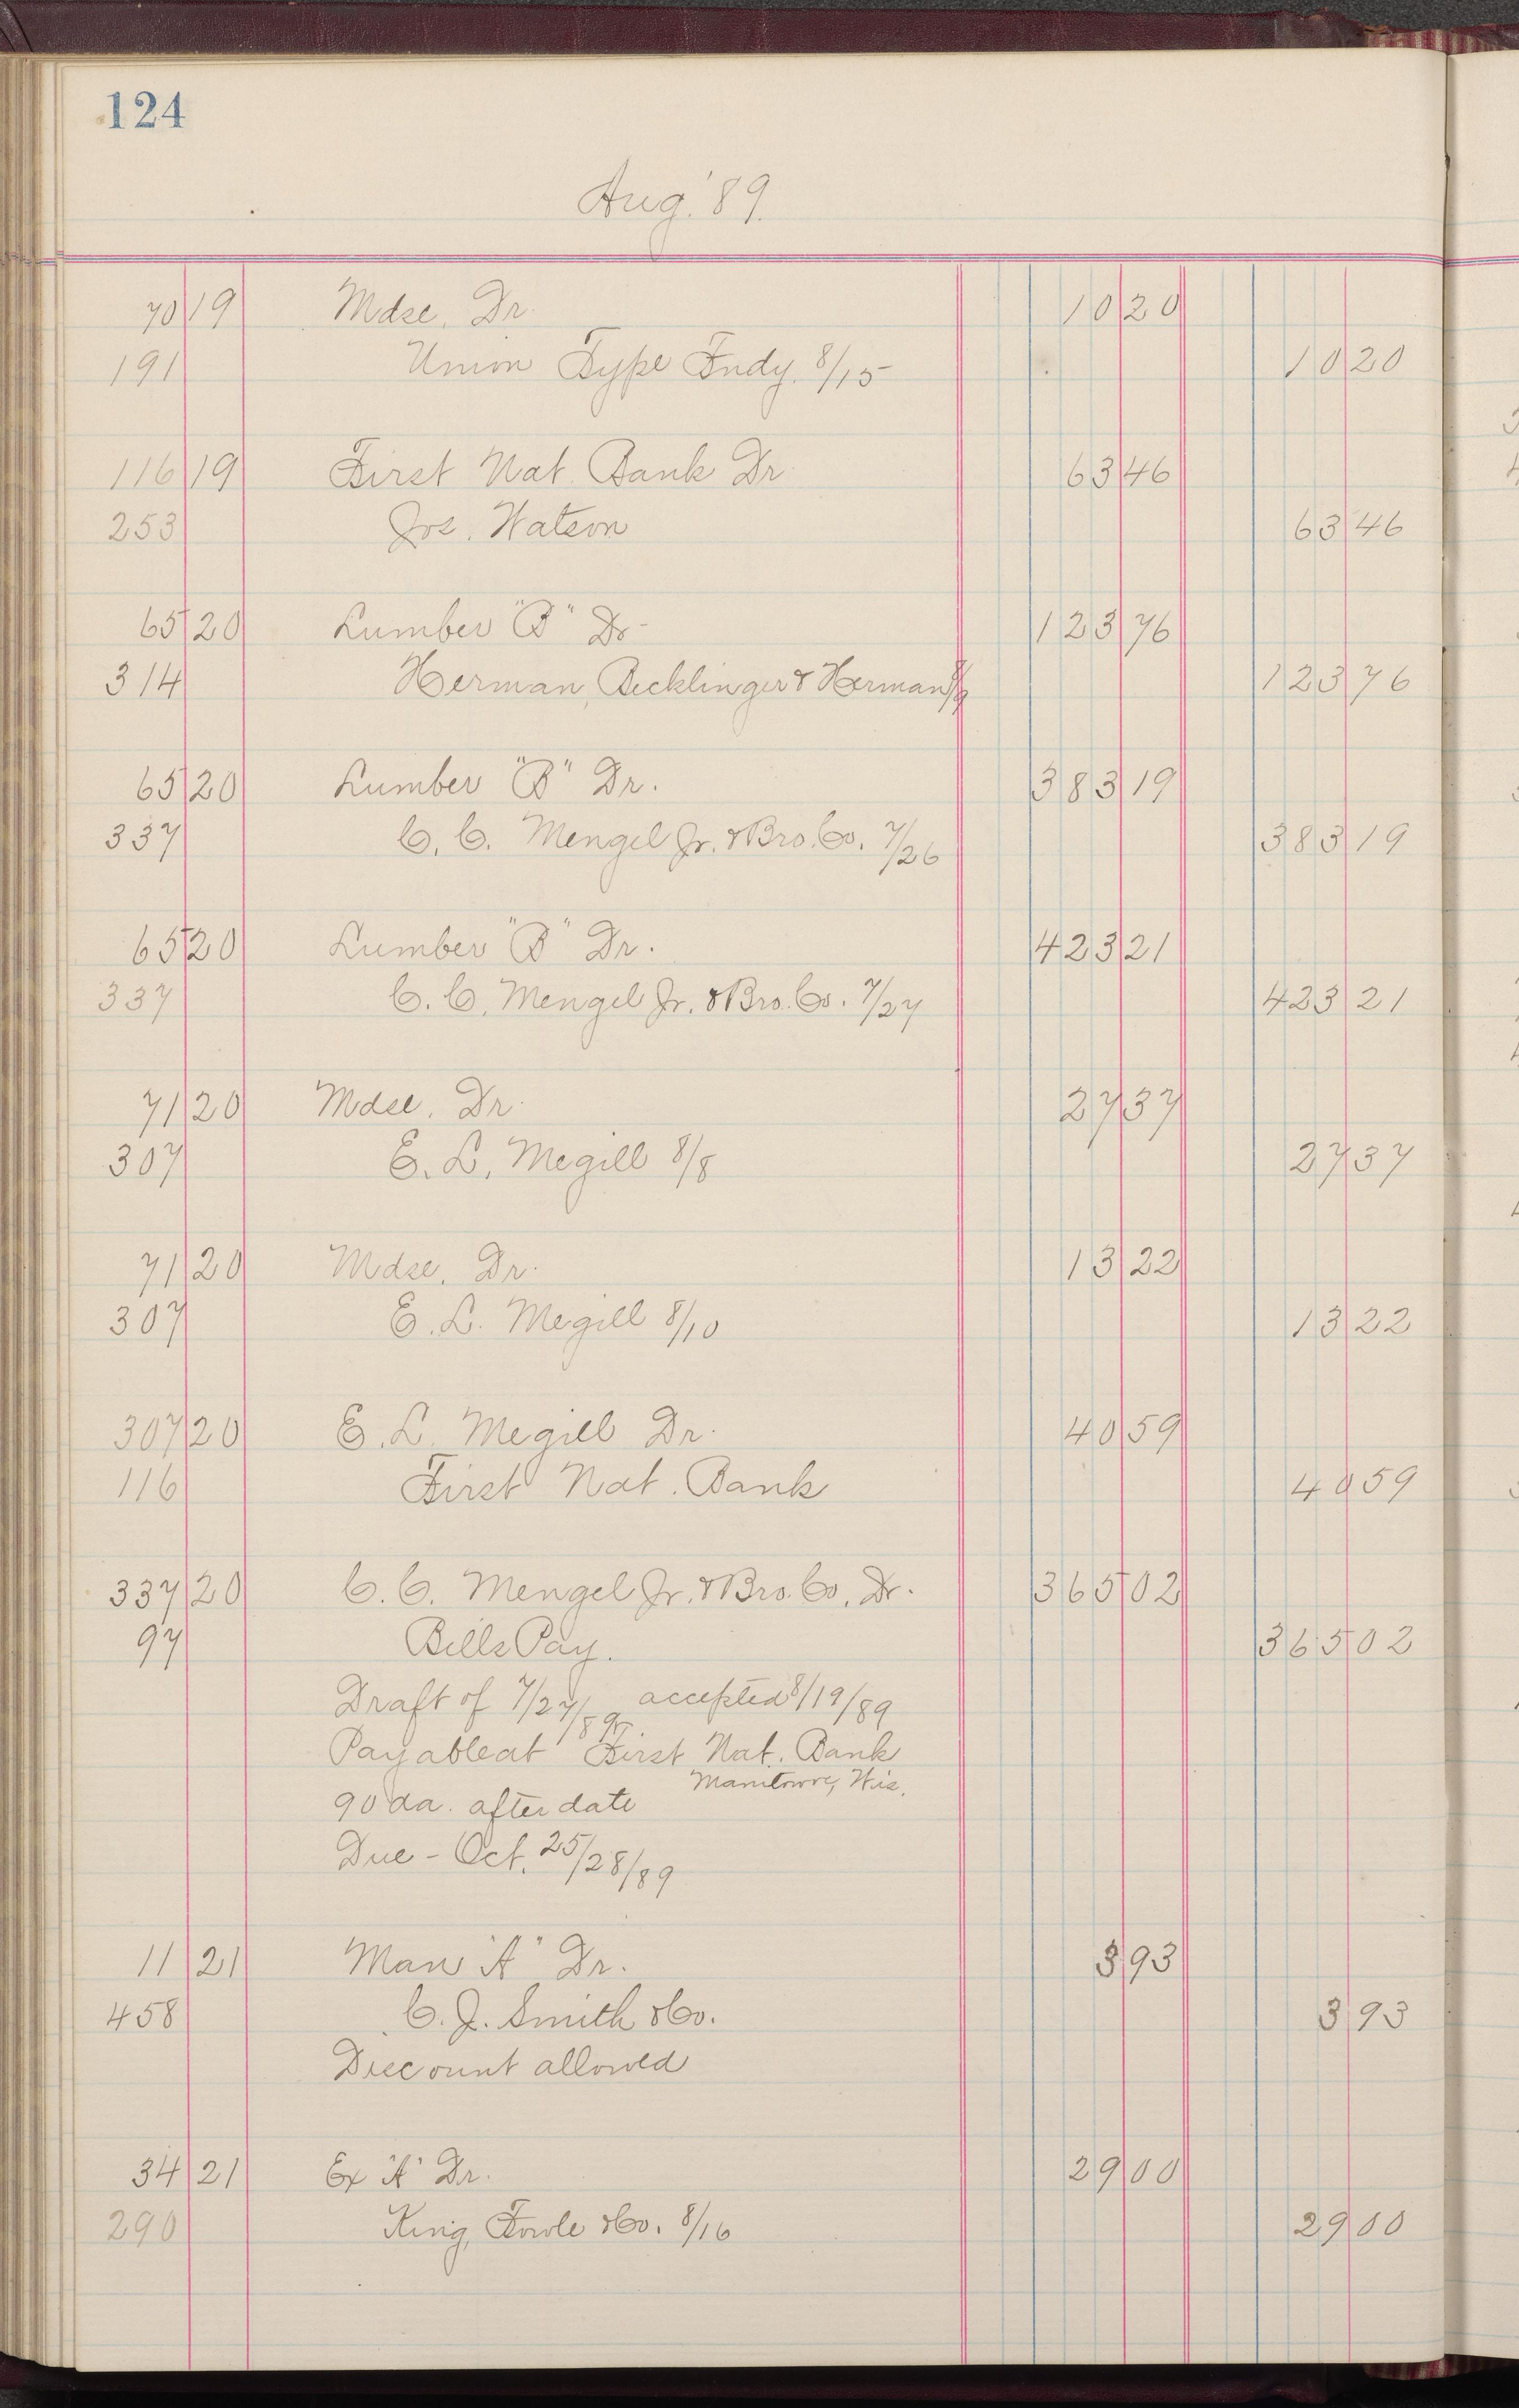 124
Aug. '89.
70 19 Mdse. Dr. 10 20
191 Union Type Fndy. 8/15 10 20
116 19 First Nat. Bank Dr. 63 46
253 Jos. Watson 63 46
65 20 Lumber "B" Dr. 123 76
314 Herman, Becklinger & Herman 8/9 123 76
65 20 Lumber "B" Dr. 383 19
337 C. C. Mengel Jr. & Bro. Co. 7/26 383 19
65 20 Lumber "B" Dr. 423 21
337 C. C. Mengel Jr. & Bro. Co. 7/27 423 21
71 20 Mdse. Dr. 27 37
307 E. L. Megill 8/8 27 37
71 20 Mdse. Dr. 13 22
307 E. L. Megill 8/10 13 22
307 20 E. L. Megill Dr. 40 59
116 First Nat. Bank 40 59
337 20 C. C. Mengel Jr. & Bro. Co. Dr. 365 02
97 Bills Pay. 365 02
Draft of 7/27/89 accepted 8/19/89
Payable at First Nat. Bank
Manitowoc, Wis.
90 da. after date
Due - Oct. 25/28/89
11 21 Man "A" Dr. 3 93
458 C. J. Smith & Co. 3 93
Discount allowed
34 21 Ex "A" Dr. 29 00
290 King, Fowle & Co. 8/16 29 00